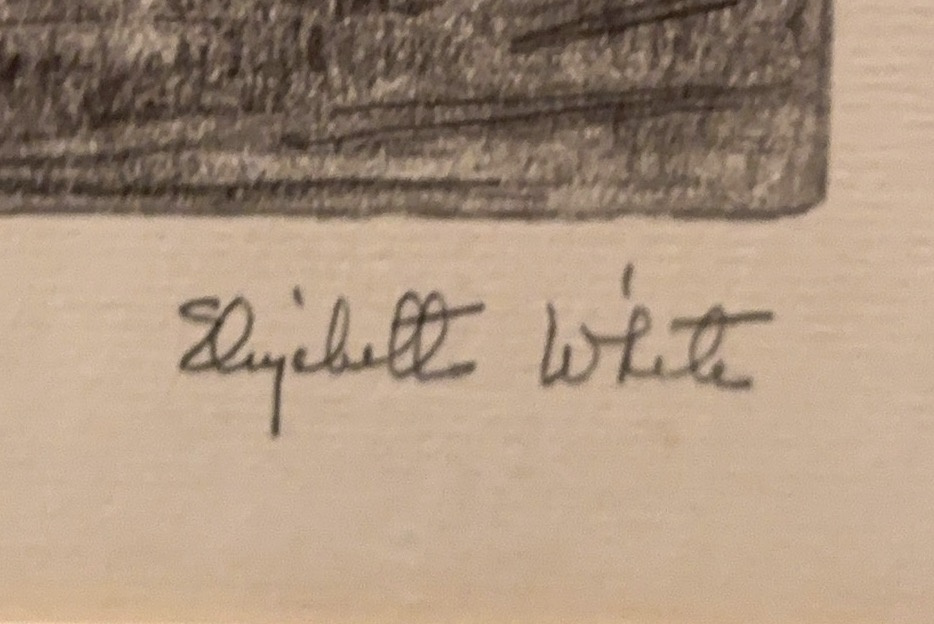 Elizabeth White